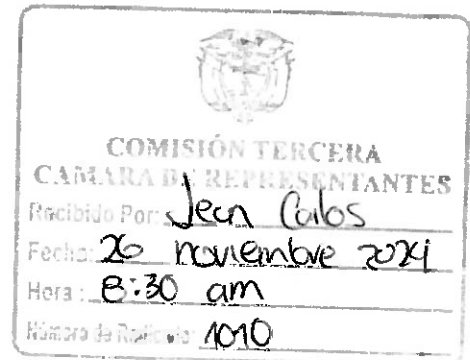 COMISIÓN TERCERA
CAMARA DE REPRESENTANTES
Recibido Por: Jean Carlos
Fecha: 26 noviembre 2024
Hora: 8:30 am
Número de Radicado: 1010